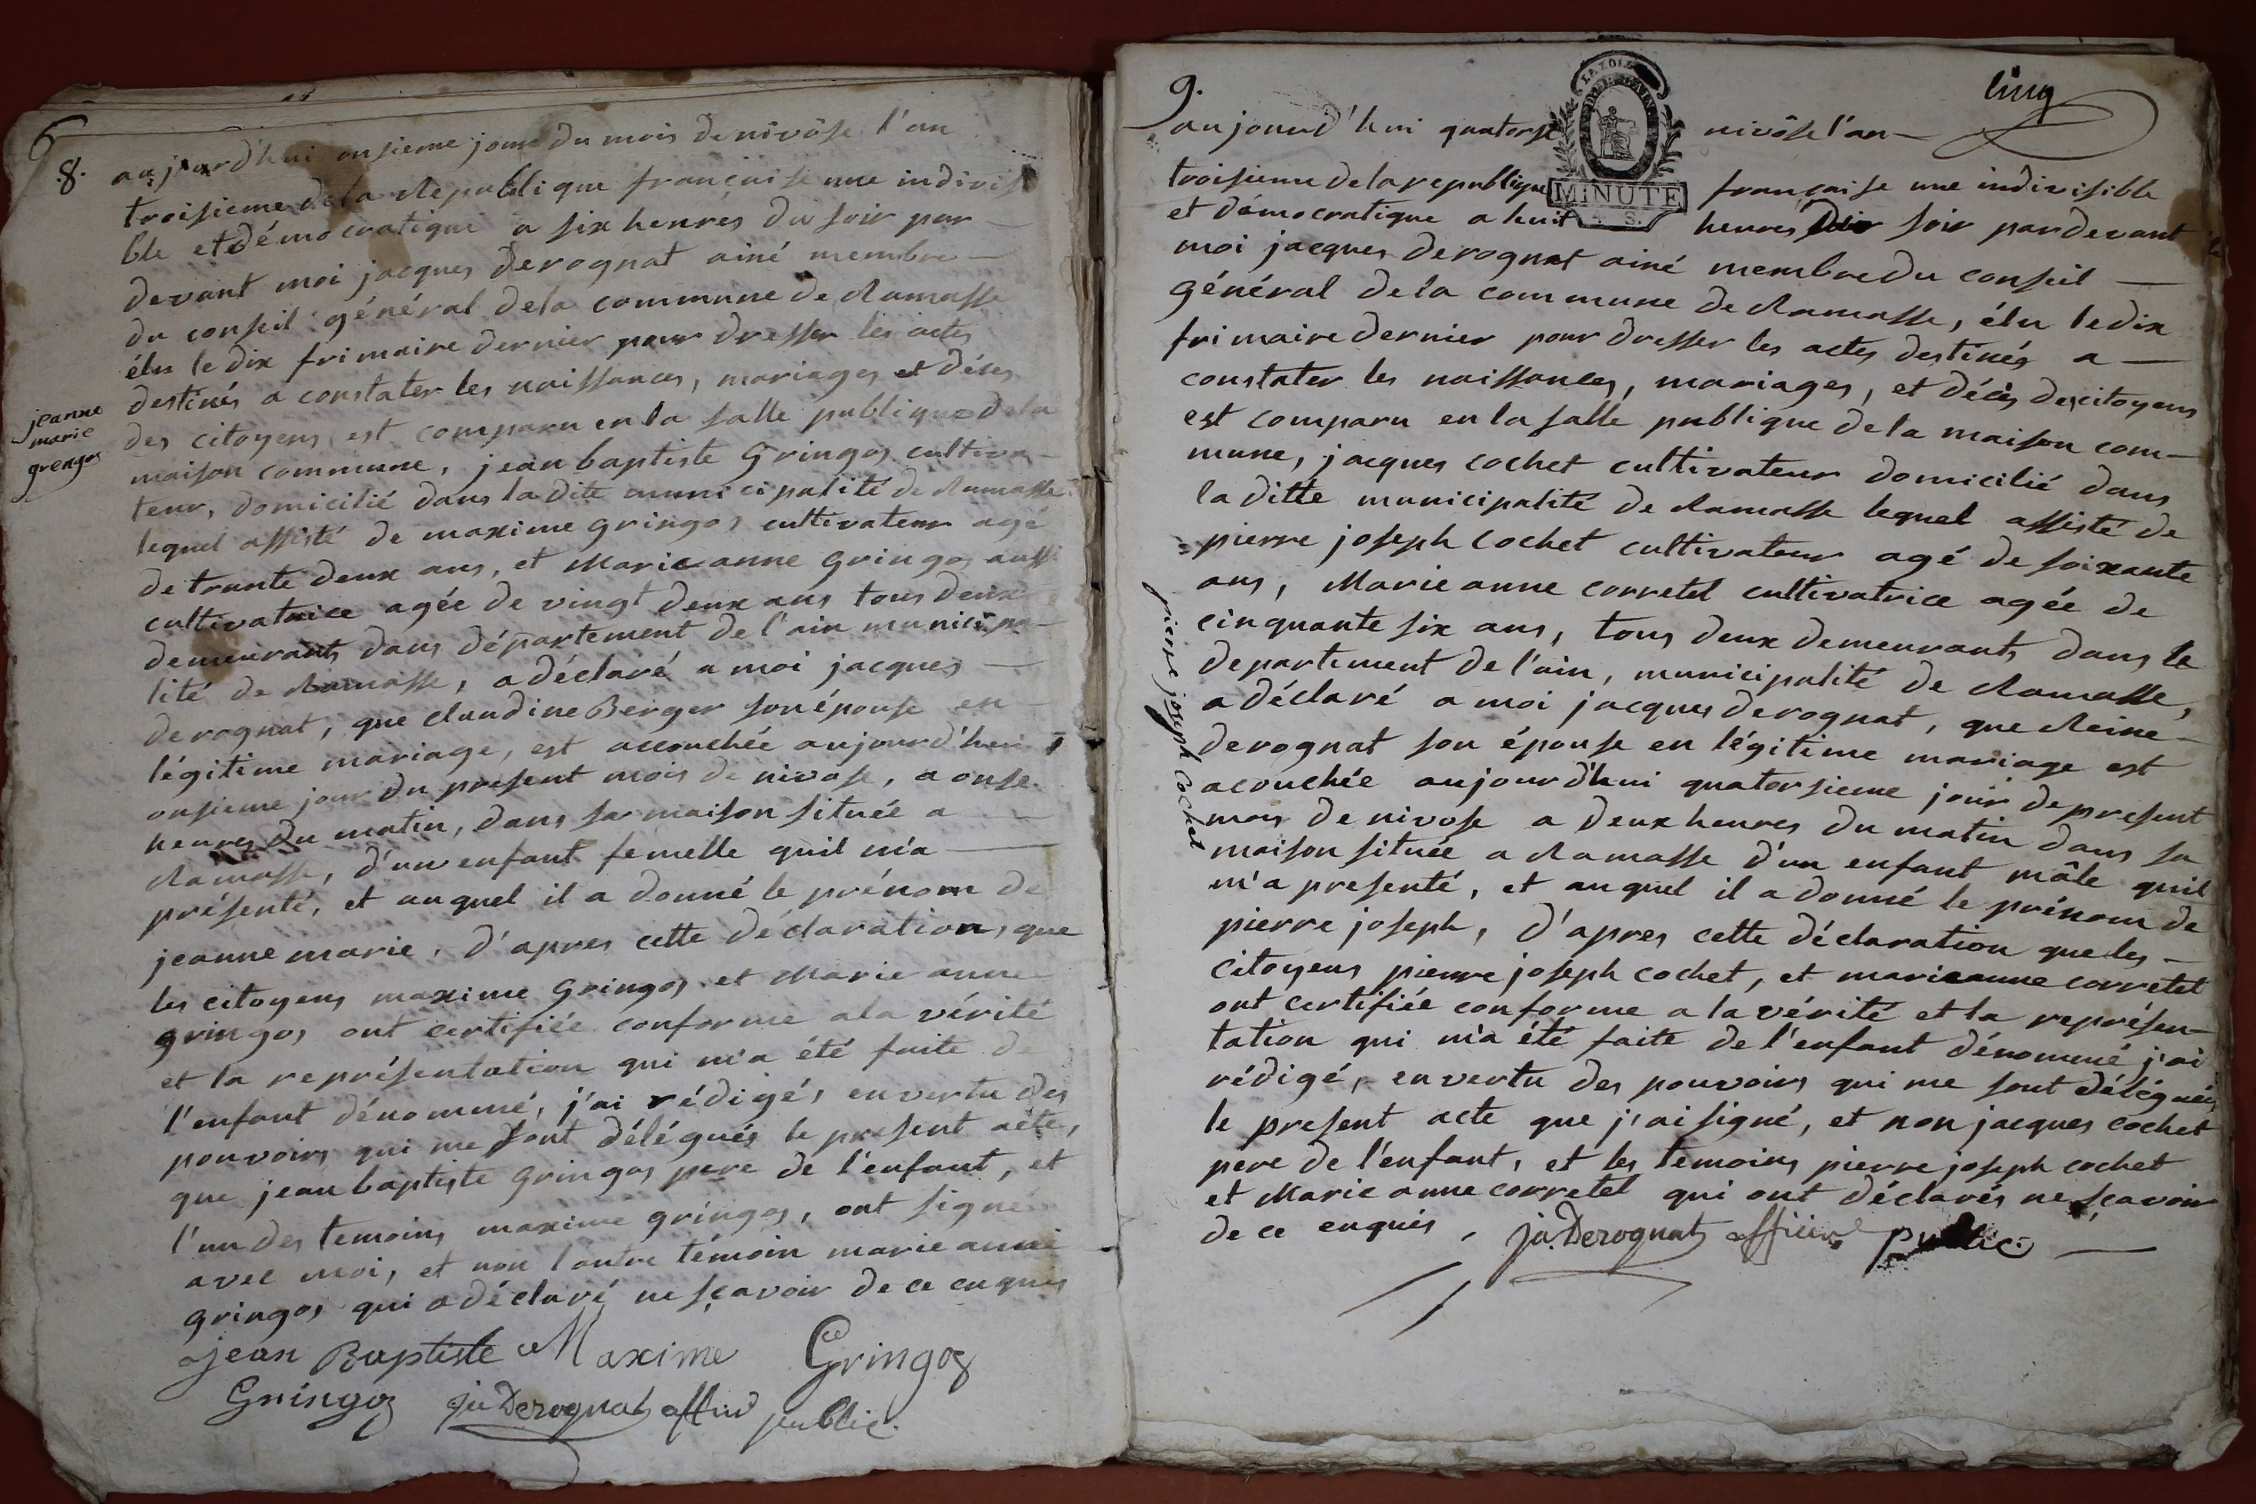 8.
aujourd'hui onsieme jour du mois de nivôse l'an
troisieme de la Republique française une indivisi
ble et démocratique a six heures du soir par
devant moi jacques derognat ainé membre
du conseil général de la commune de Ramasse
élu le dix frimaire dernier pour dresser les actes
destinés a constater les naissances, mariages et décès
des citoyens est comparu en la salle publique de la
maison commune, jean baptiste Gringos cultiva-
teur, domicilié dans la ditte municipalité de Ramasse
lequel assisté de maxime gringos cultivateur agé
de trante deux ans, et Marie anne gringos aussi
cultivatrice agée de vingt deux ans tous deux
demeurants dans département de l'ain municipa-
lité de Ramasse, a déclaré a moi jacques
derognat, que claudine Berger son épouse en
légitime mariage, est accouchée aujourd'hui
onsieme jour du present mois de nivose, a onse
heures du matin, dans sa maison située a
Ramasse, d'un enfant femelle quil m'a
présenté, et auquel il a donné le prénom de
jeanne marie, d'apres cette déclaration, que
les citoyens maxime Gringos et Marie anne
gringos ont certifiée conforme a la vérité
et la représentation qui m'a été faite de
l'enfant dénommé, j'ai rédigés en vertu des
pouvoirs qui me sont délégués le present acte,
que jean baptiste gringos pere de l'enfant, et
l'un des temoins maxime gringos, ont signé
avec moi, et non l'autre témoin marie anne
gringos qui a déclaré ne sçavoir de ce enquis
jean Baptiste Maxime Gringoz
Gringoz ja Derognat officier public.
jeanne
marie
grengos
cinq
9.
aujourd'hui quatorse nivôse l'an
LA LOI
MINUTE
troisieme de la republique française une indivisible
et démocratique a huit heures du soir pardevant
moi jacques derognat ainé membre du conseil
général de la commune de Ramasse, élu le dix
frimaire dernier pour dresser les actes destinés a
constater les naissances, mariages, et décès des citoyens
est comparu en la salle publique de la maison com-
mune, jacques cochet cultivateur domicilié dans
la ditte municipalité de Ramasse lequel assisté de
pierre joseph cochet cultivateur agé de soixante
ans, Marie anne corretel cultivatrice agée de
cinquante six ans, tous deux demeurants dans le
departement de l'ain, municipalité de Ramasse,
a déclaré a moi jacques derognat, que Reine
derognat son épouse en légitime mariage est
acouchée aujourd'hui quatorsieme jour de present
mois de nivose a deux heures du matin dans sa
maison située a Ramasse d'un enfant mâle quil
m'a presenté, et auquel il a donné le prénom de
pierre joseph, d'apres cette déclaration que les
citoyens pierre joseph cochet, et marie anne corretet
ont certifiée conforme a la vérité et la représen-
tation qui m'a été faite de l'enfant dénommé j'ai
rédigé, en vertu des pouvoirs qui me sont délégués
le present acte que j'ai signé, et non jacques cochet
pere de l'enfant, et les temoins pierre joseph cochet
et Marie anne corretel qui ont déclarés ne sçavoir
de ce enquis, ja. Derognat officier public.
pierre joseph cochet